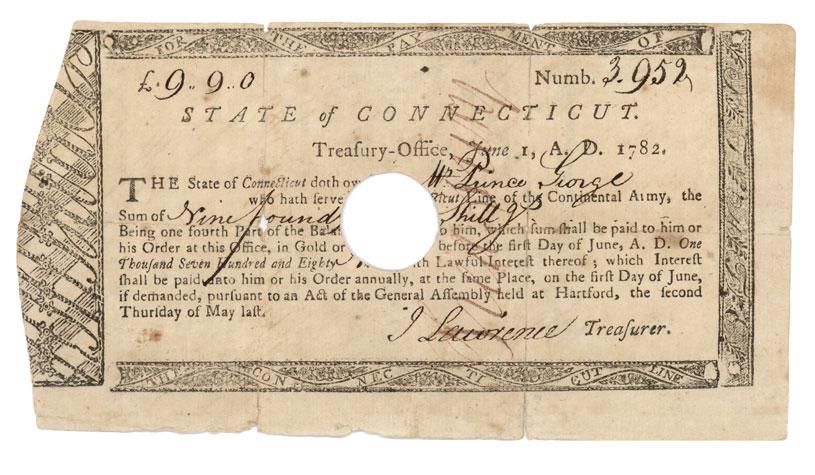 FOR THE PAYMENT OF
£9..9..0 Numb. 3.952
STATE of CONNECTICUT.
Treasury-Office, June 1, A. D. 1782.
THE State of Connecticut doth ow Mr Prince George
who hath serve Line of the Continental Army, the
Sum of Nine pound Shill 9
Being one fourth Part of the Bala to him, which sum shall be paid to him or
his Order at this Office, in Gold or before the first Day of June, A. D. One
Thousand Seven Hundred and Eighty with Lawful Interest thereof ; which Interest
shall be paid unto him or his Order annually, at the same Place, on the first Day of June,
if demanded, pursuant to an Act of the General Assembly held at Hartford, the second
Thursday of May last.
J Lawrence Treasurer.
THE CONNECTICUT LINE